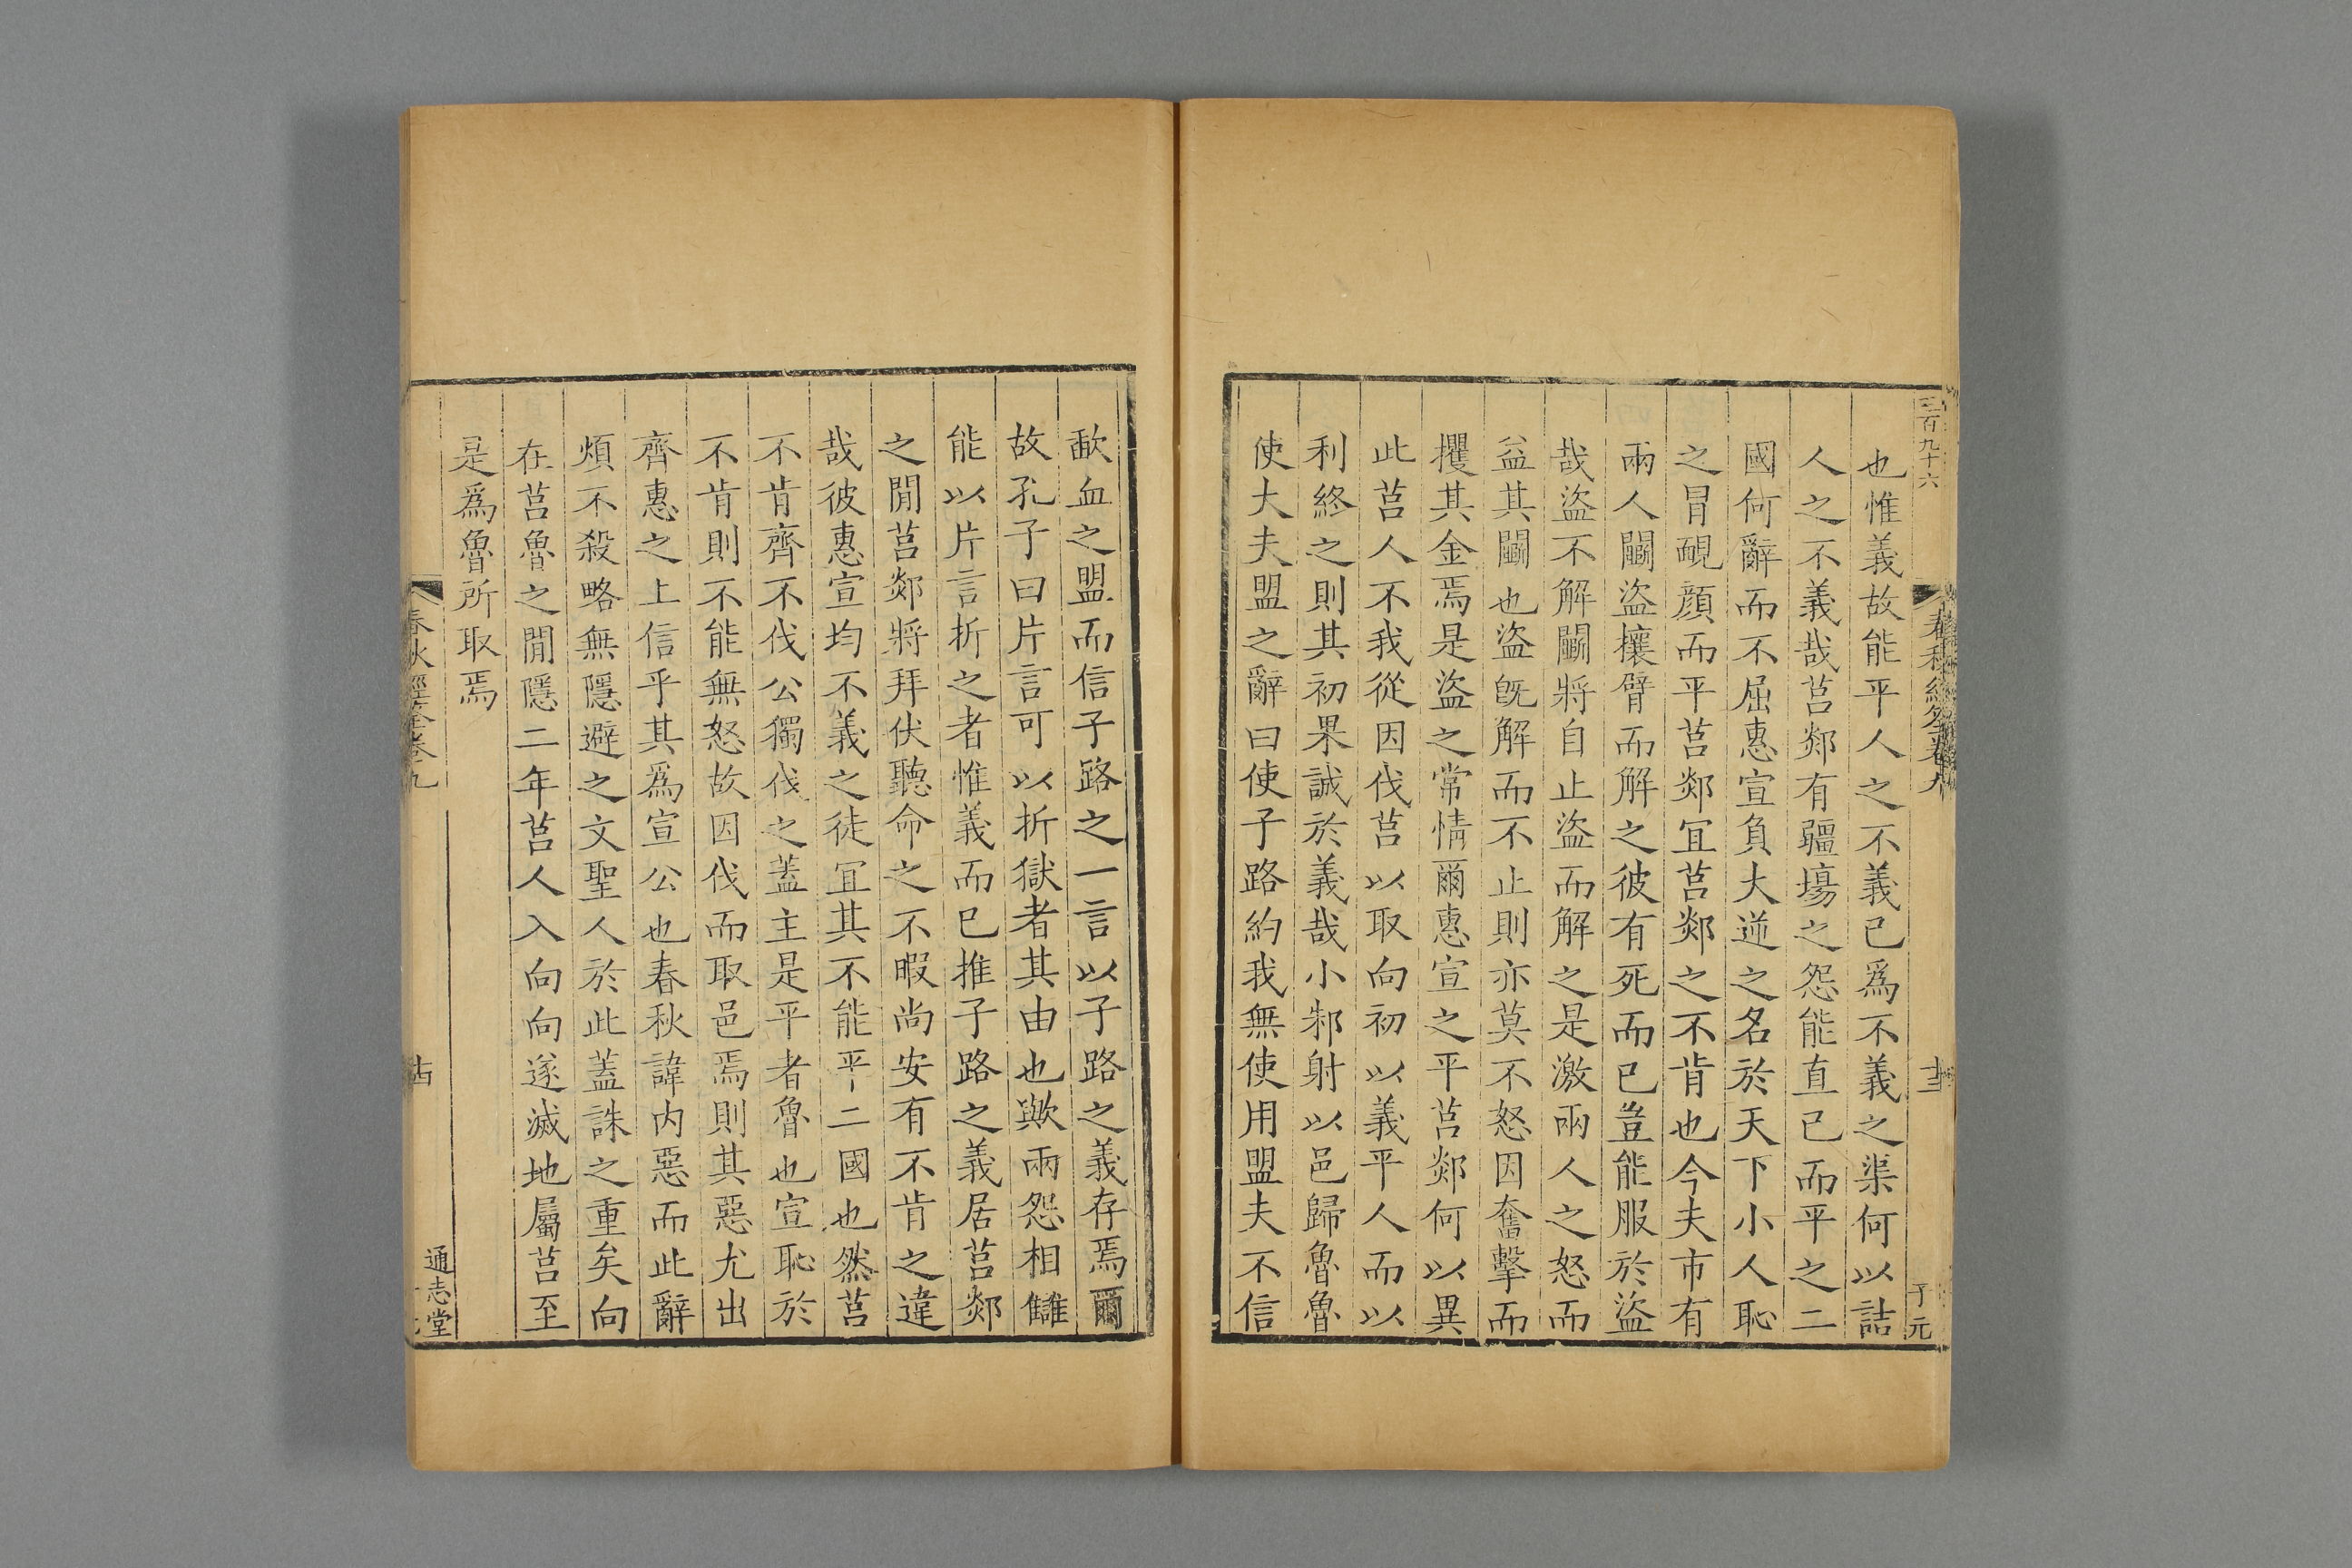 三百九十六
春秋經筌卷九
十三
于元
也惟義故能平人之不義已爲不義之渠何以詰
人之不義哉莒郯有疆埸之怨能直已而平之二
國何辭而不屈惠宣負大逆之名於天下小人恥
之冒靦顔而平莒郯宜莒郯之不肯也今夫市有
兩人鬬盜攘臂而解之彼有死而已豈能服於盜
哉盜不解鬬將自止盜而解之是激兩人之怒而
益其鬬也盜旣解而不止則亦莫不怒因奮擊而
攫其金焉是盜之常情爾惠宣之平莒郯何以異
此莒人不我從因伐莒以取向初以義平人而以
利終之則其初果誠於義哉小邾射以邑歸魯魯
使大夫盟之辭曰使子路約我無使用盟夫不信
歃血之盟而信子路之一言以子路之義存焉爾
故孔子曰片言可以折獄者其由也歟兩怨相讎
能以片言折之者惟義而已推子路之義居莒郯
之閒莒郯將拜伏聽命之不暇尚安有不肯之違
哉彼惠宣均不義之徒宜其不能平二國也然莒
不肯齊不伐公獨伐之蓋主是平者魯也宣恥於
不肯則不能無怒故因伐而取邑焉則其惡尤出
齊惠之上信乎其爲宣公也春秋諱内惡而此辭
煩不殺略無隱避之文聖人於此蓋誅之重矣向
在莒魯之閒隱二年莒人入向向遂滅地屬莒至
是爲魯所取焉
春秋經筌卷九
十四
通志堂